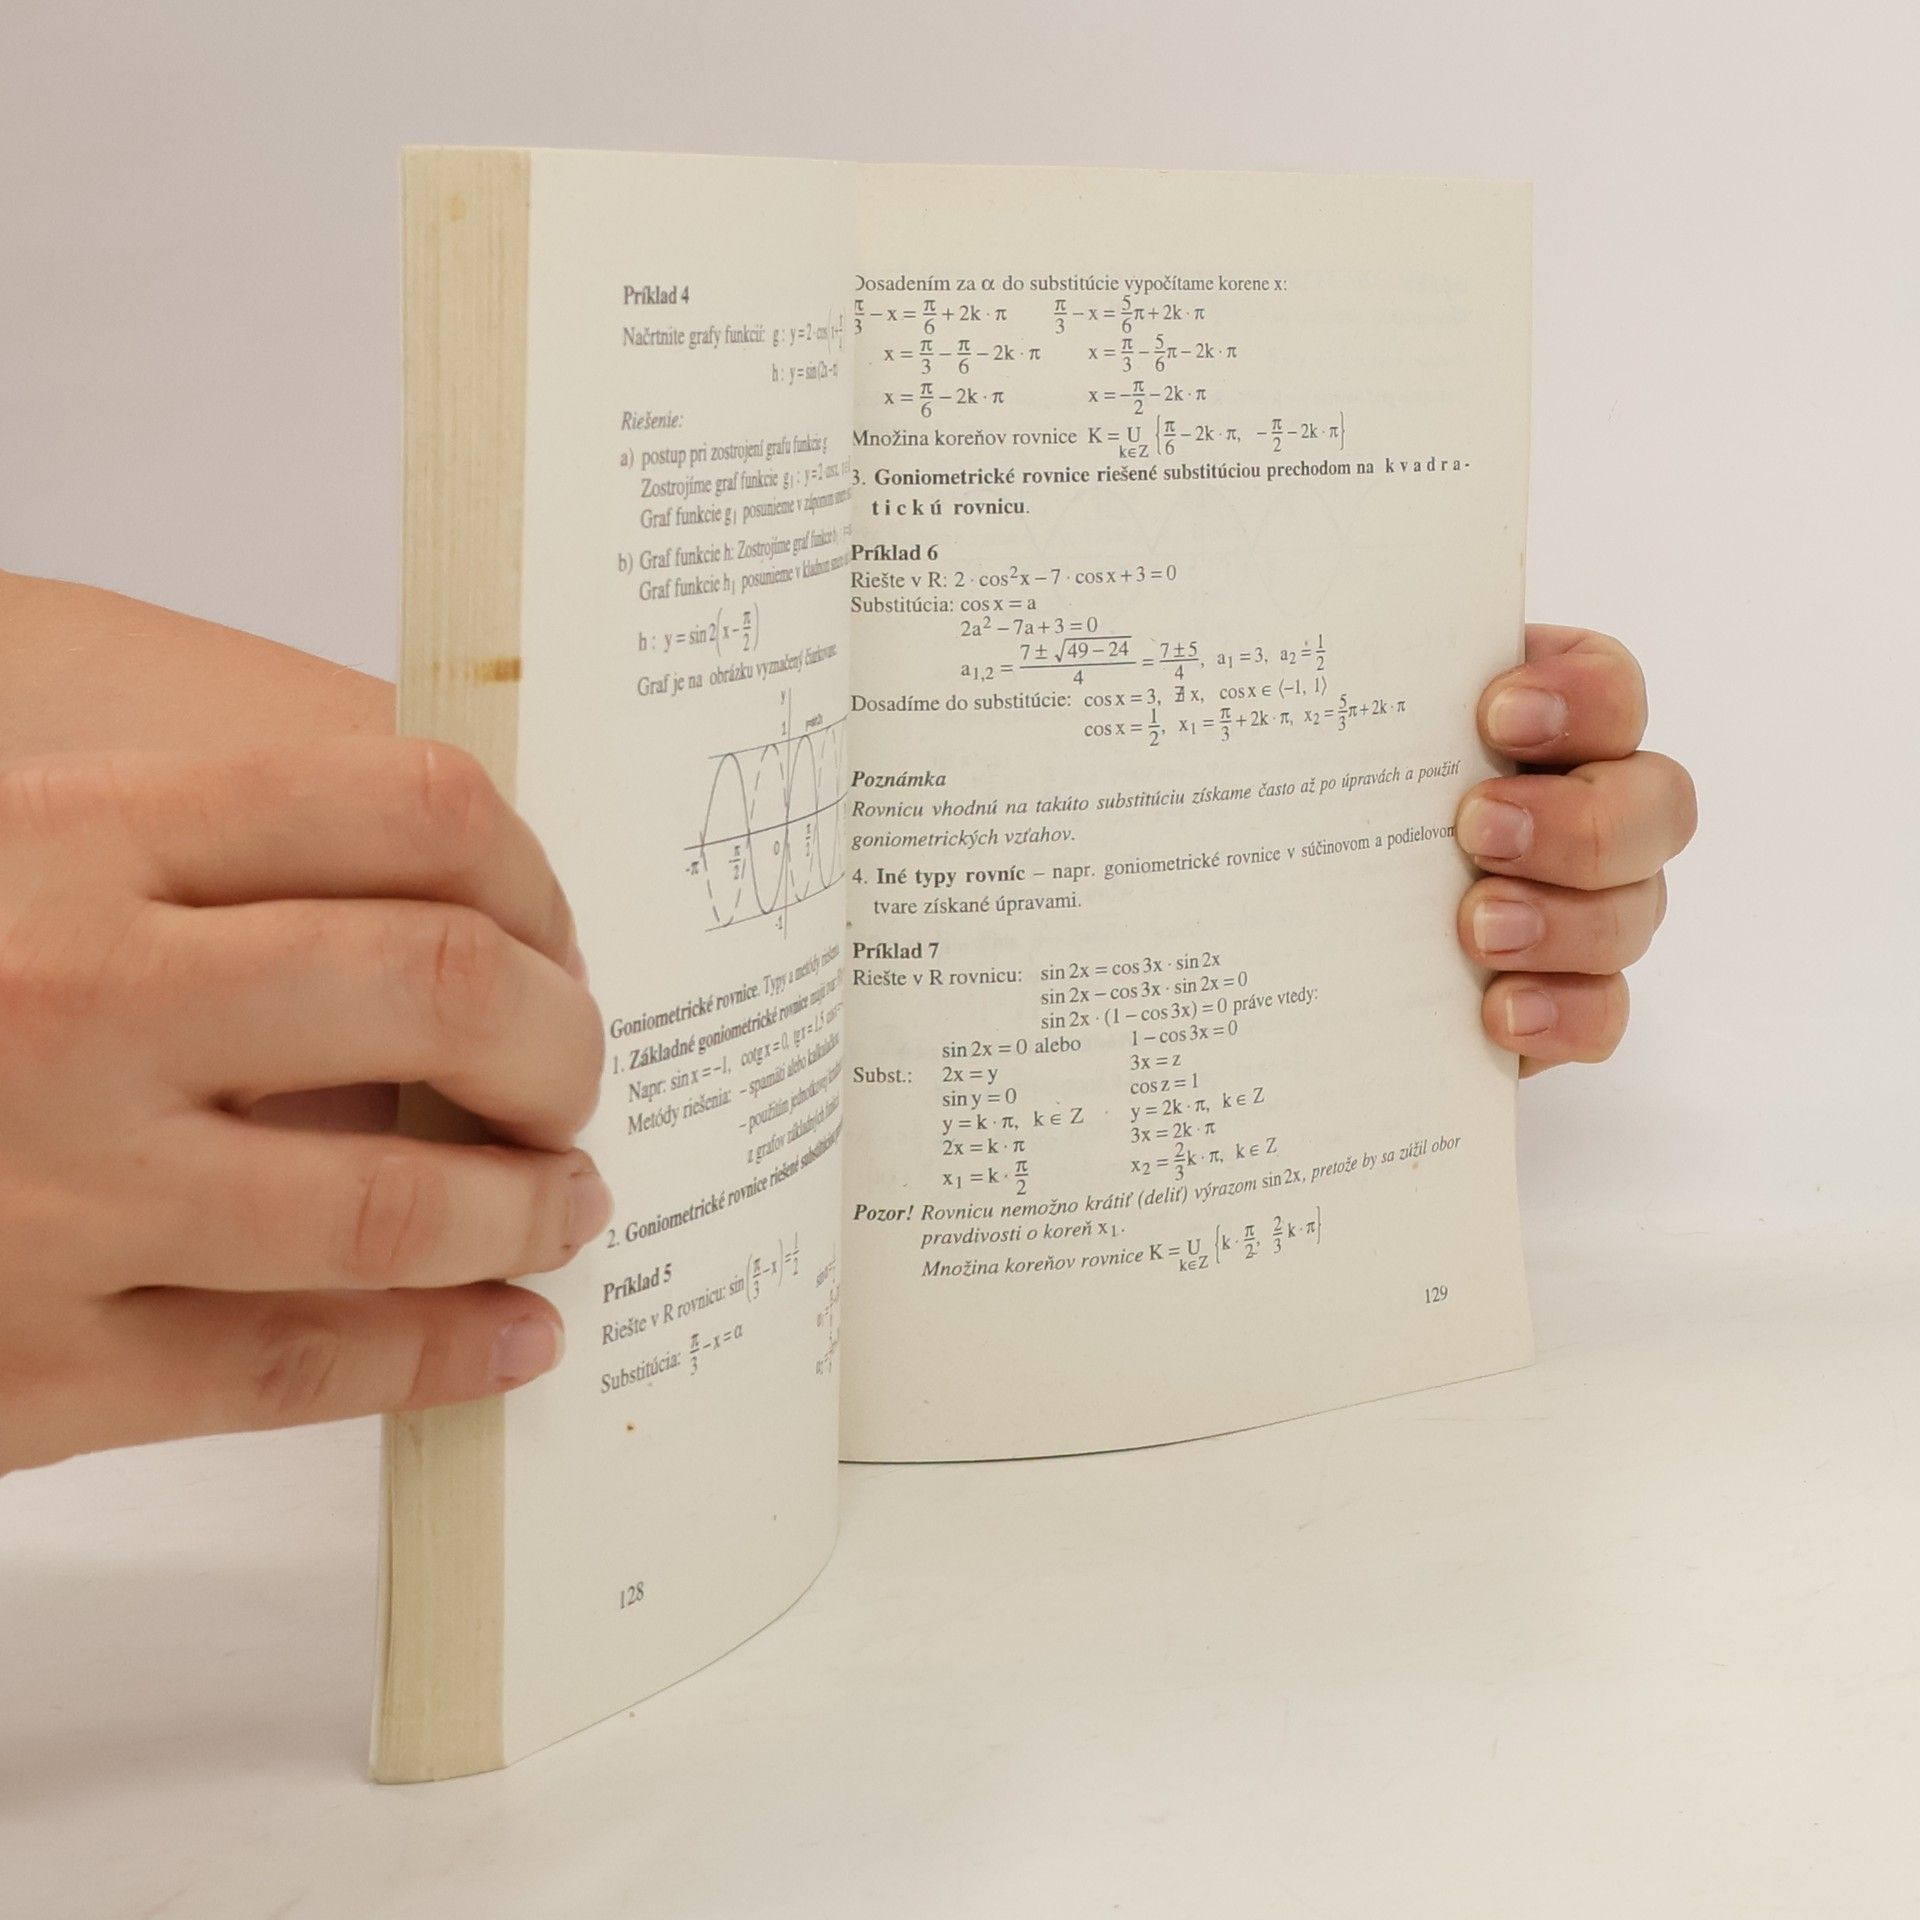 Príklad 4
Načrtnite grafy funkcií: g: y = 2·cos
h: y = sin(2x − π
Riešenie:
a) postup pri zostrojení grafu funkcie g
Zostrojíme graf funkcie g₁: y = 2·cosx,
Graf funkcie g₁ posunieme v zápornom
b) Graf funkcie h: Zostrojíme graf funkcie h₁
Graf funkcie h₁ posunieme v kladnom
h: y = sin 2(x − π/2)
Graf je na obrázku vyznačený čiarkovane.
y
1
-π
-π/2
0
π/2
-1
Goniometrické rovnice. Typy a metódy riešenia
1. Základné goniometrické rovnice majú tvar:
Napr: sin x = −1, cotg x = 0, tg x = 1,5
Metódy riešenia: – spamäti alebo kalkulačkou
– použitím jednotkovej
z grafov základných funkcií
2. Goniometrické rovnice riešené substitúciou
Príklad 5
Riešte v R rovnicu: sin(π/3 − x) = 1/2
Substitúcia: π/3 − x = α
128
Dosadením za α do substitúcie vypočítame korene x:
π/3 − x = π/6 + 2k · π π/3 − x = 5/6 π + 2k · π
x = π/3 − π/6 − 2k · π x = π/3 − 5/6 π − 2k · π
x = π/6 − 2k · π x = −π/2 − 2k · π
Množina koreňov rovnice K = U k∈Z {π/6 − 2k · π, −π/2 − 2k · π}
3. Goniometrické rovnice riešené substitúciou prechodom na k v a d r a -
t i c k ú rovnicu.
Príklad 6
Riešte v R: 2 · cos²x − 7 · cos x + 3 = 0
Substitúcia: cos x = a
2a² − 7a + 3 = 0
a₁,₂ = (7 ± √(49 − 24))/4 = (7 ± 5)/4, a₁ = 3, a₂ = 1/2
Dosadíme do substitúcie: cos x = 3, ∄ x, cos x ∈ ⟨−1, 1⟩
cos x = 1/2, x₁ = π/3 + 2k · π, x₂ = 5/3 π + 2k · π
Poznámka
Rovnicu vhodnú na takúto substitúciu získame často až po úpravách a použití
goniometrických vzťahov.
4. Iné typy rovníc – napr. goniometrické rovnice v súčinovom a podielovom
tvare získané úpravami.
Príklad 7
Riešte v R rovnicu: sin 2x = cos 3x · sin 2x
sin 2x − cos 3x · sin 2x = 0
sin 2x · (1 − cos 3x) = 0 práve vtedy:
sin 2x = 0 alebo 1 − cos 3x = 0
Subst.: 2x = y 3x = z
sin y = 0 cos z = 1
y = k · π, k ∈ Z y = 2k · π, k ∈ Z
2x = k · π 3x = 2k · π
x₁ = k · π/2 x₂ = 2/3 k · π, k ∈ Z
Pozor! Rovnicu nemožno krátiť (deliť) výrazom sin 2x, pretože by sa zúžil obor
pravdivosti o koreň x₁.
Množina koreňov rovnice K = U k∈Z {k · π/2, 2/3 k · π}
129